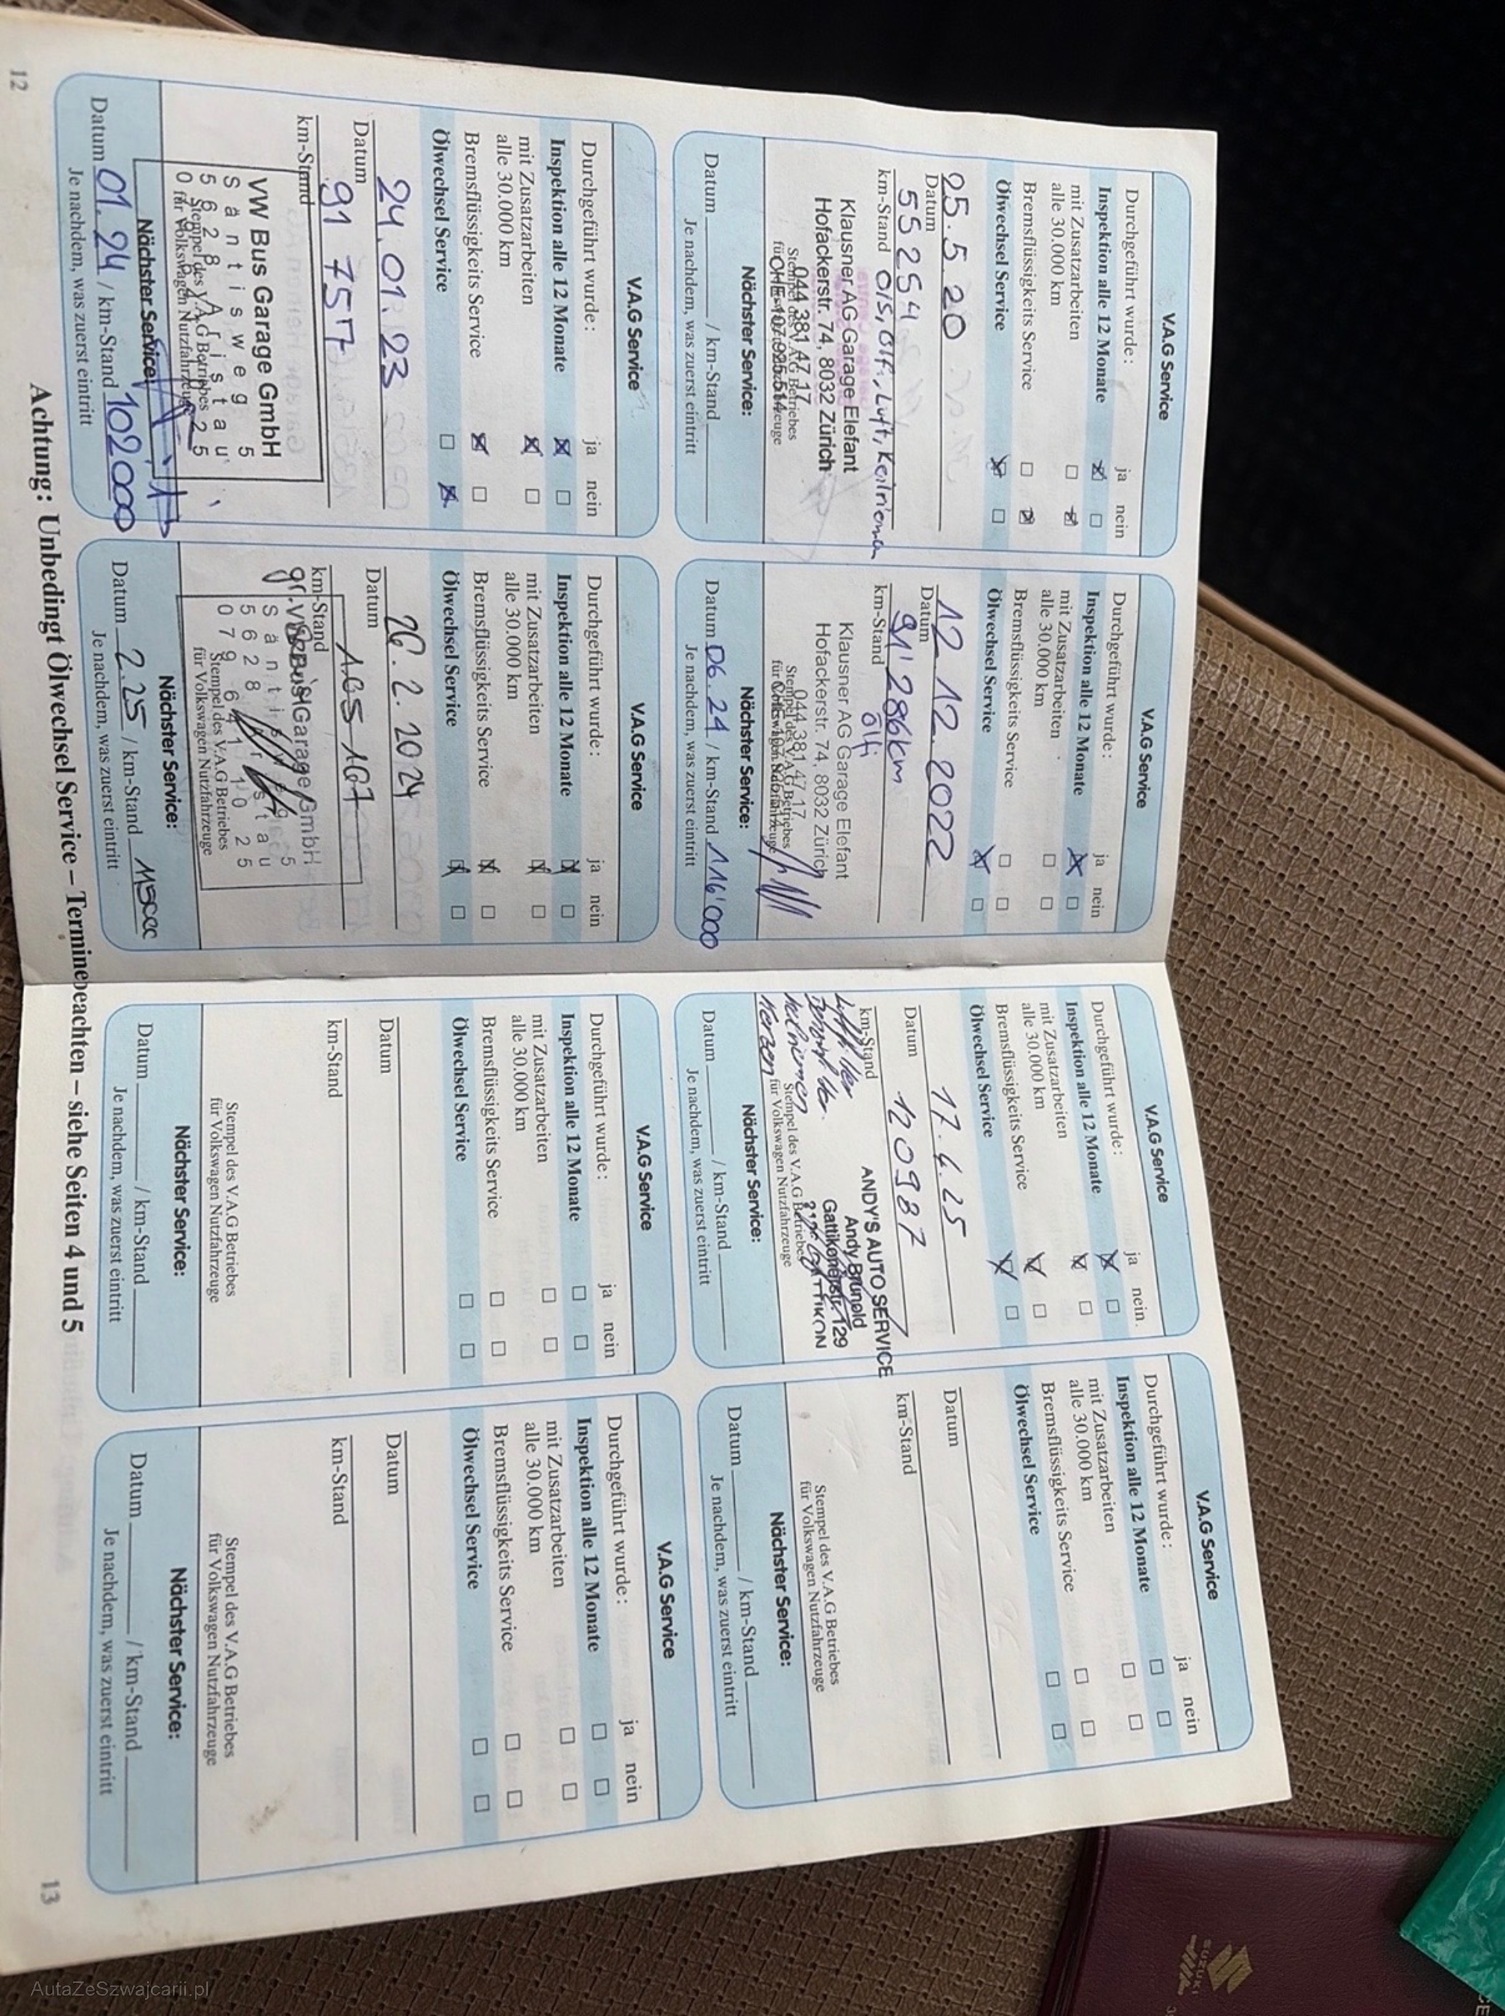 V.A.G Service
Durchgeführt wurde: ja nein
Inspektion alle 12 Monate
mit Zusatzarbeiten
alle 30.000 km
Bremsflüssigkeits Service
Ölwechsel Service
25.5.20
Datum
55254
km-Stand Öls, Ölf., Luft,
Klausner AG Garage Elefant
Hofackerstr. 74, 8032 Zürich
044 381 47 17
Stempel des V.A.G Betriebes
Nächster Service:
Datum / km-Stand
Je nachdem, was zuerst eintritt
V.A.G Service
Durchgeführt wurde: ja nein
Inspektion alle 12 Monate
mit Zusatzarbeiten
alle 30.000 km
Bremsflüssigkeits Service
Ölwechsel Service
12.12.2022
Datum
91'286km
km-Stand
Klausner AG Garage Elefant
Hofackerstr. 74, 8032 Zürich
044 381 47 17
Stempel des V.A.G Betriebes
Nächster Service:
Datum 06.24 / km-Stand 116'000
Je nachdem, was zuerst eintritt
V.A.G Service
Durchgeführt wurde: ja nein
Inspektion alle 12 Monate
mit Zusatzarbeiten
alle 30.000 km
Bremsflüssigkeits Service
Ölwechsel Service
24.01.23
Datum
91757
km-Stand
VW Bus Garage GmbH
Säntisweg 5
5628 Aristau
Stempel des V.A.G Betriebes
für Volkswagen Nutzfahrzeuge
Nächster Service:
Datum 01.24 / km-Stand 102000
Je nachdem, was zuerst eintritt
V.A.G Service
Durchgeführt wurde: ja nein
Inspektion alle 12 Monate
mit Zusatzarbeiten
alle 30.000 km
Bremsflüssigkeits Service
Ölwechsel Service
26.2.2024
Datum
105 167
km-Stand
Garage GmbH
5628 Aristau
Stempel des V.A.G Betriebes
für Volkswagen Nutzfahrzeuge
Nächster Service:
Datum 2.25 / km-Stand 115000
Je nachdem, was zuerst eintritt
12
V.A.G Service
Durchgeführt wurde: ja nein
Inspektion alle 12 Monate
mit Zusatzarbeiten
alle 30.000 km
Bremsflüssigkeits Service
Ölwechsel Service
17.4.25
Datum
120987
km-Stand
ANDY'S AUTO SERVICE
Andy Brunold
Gattikonerstr. 129
GATTIKON
Kerzen
Stempel des V.A.G Betriebes
für Volkswagen Nutzfahrzeuge
Nächster Service:
Datum / km-Stand
Je nachdem, was zuerst eintritt
V.A.G Service
Durchgeführt wurde: ja nein
Inspektion alle 12 Monate
mit Zusatzarbeiten
alle 30.000 km
Bremsflüssigkeits Service
Ölwechsel Service
Datum
km-Stand
Stempel des V.A.G Betriebes
für Volkswagen Nutzfahrzeuge
Nächster Service:
Datum / km-Stand
Je nachdem, was zuerst eintritt
V.A.G Service
Durchgeführt wurde: ja nein
Inspektion alle 12 Monate
mit Zusatzarbeiten
alle 30.000 km
Bremsflüssigkeits Service
Ölwechsel Service
Datum
km-Stand
Stempel des V.A.G Betriebes
für Volkswagen Nutzfahrzeuge
Nächster Service:
Datum / km-Stand
Je nachdem, was zuerst eintritt
V.A.G Service
Durchgeführt wurde: ja nein
Inspektion alle 12 Monate
mit Zusatzarbeiten
alle 30.000 km
Bremsflüssigkeits Service
Ölwechsel Service
Datum
km-Stand
Stempel des V.A.G Betriebes
für Volkswagen Nutzfahrzeuge
Nächster Service:
Datum / km-Stand
Je nachdem, was zuerst eintritt
Achtung: Unbedingt Ölwechsel Service – Termine beachten – siehe Seiten 4 und 5
13
SUZUKI
AutaZeSzwajcarii.pl